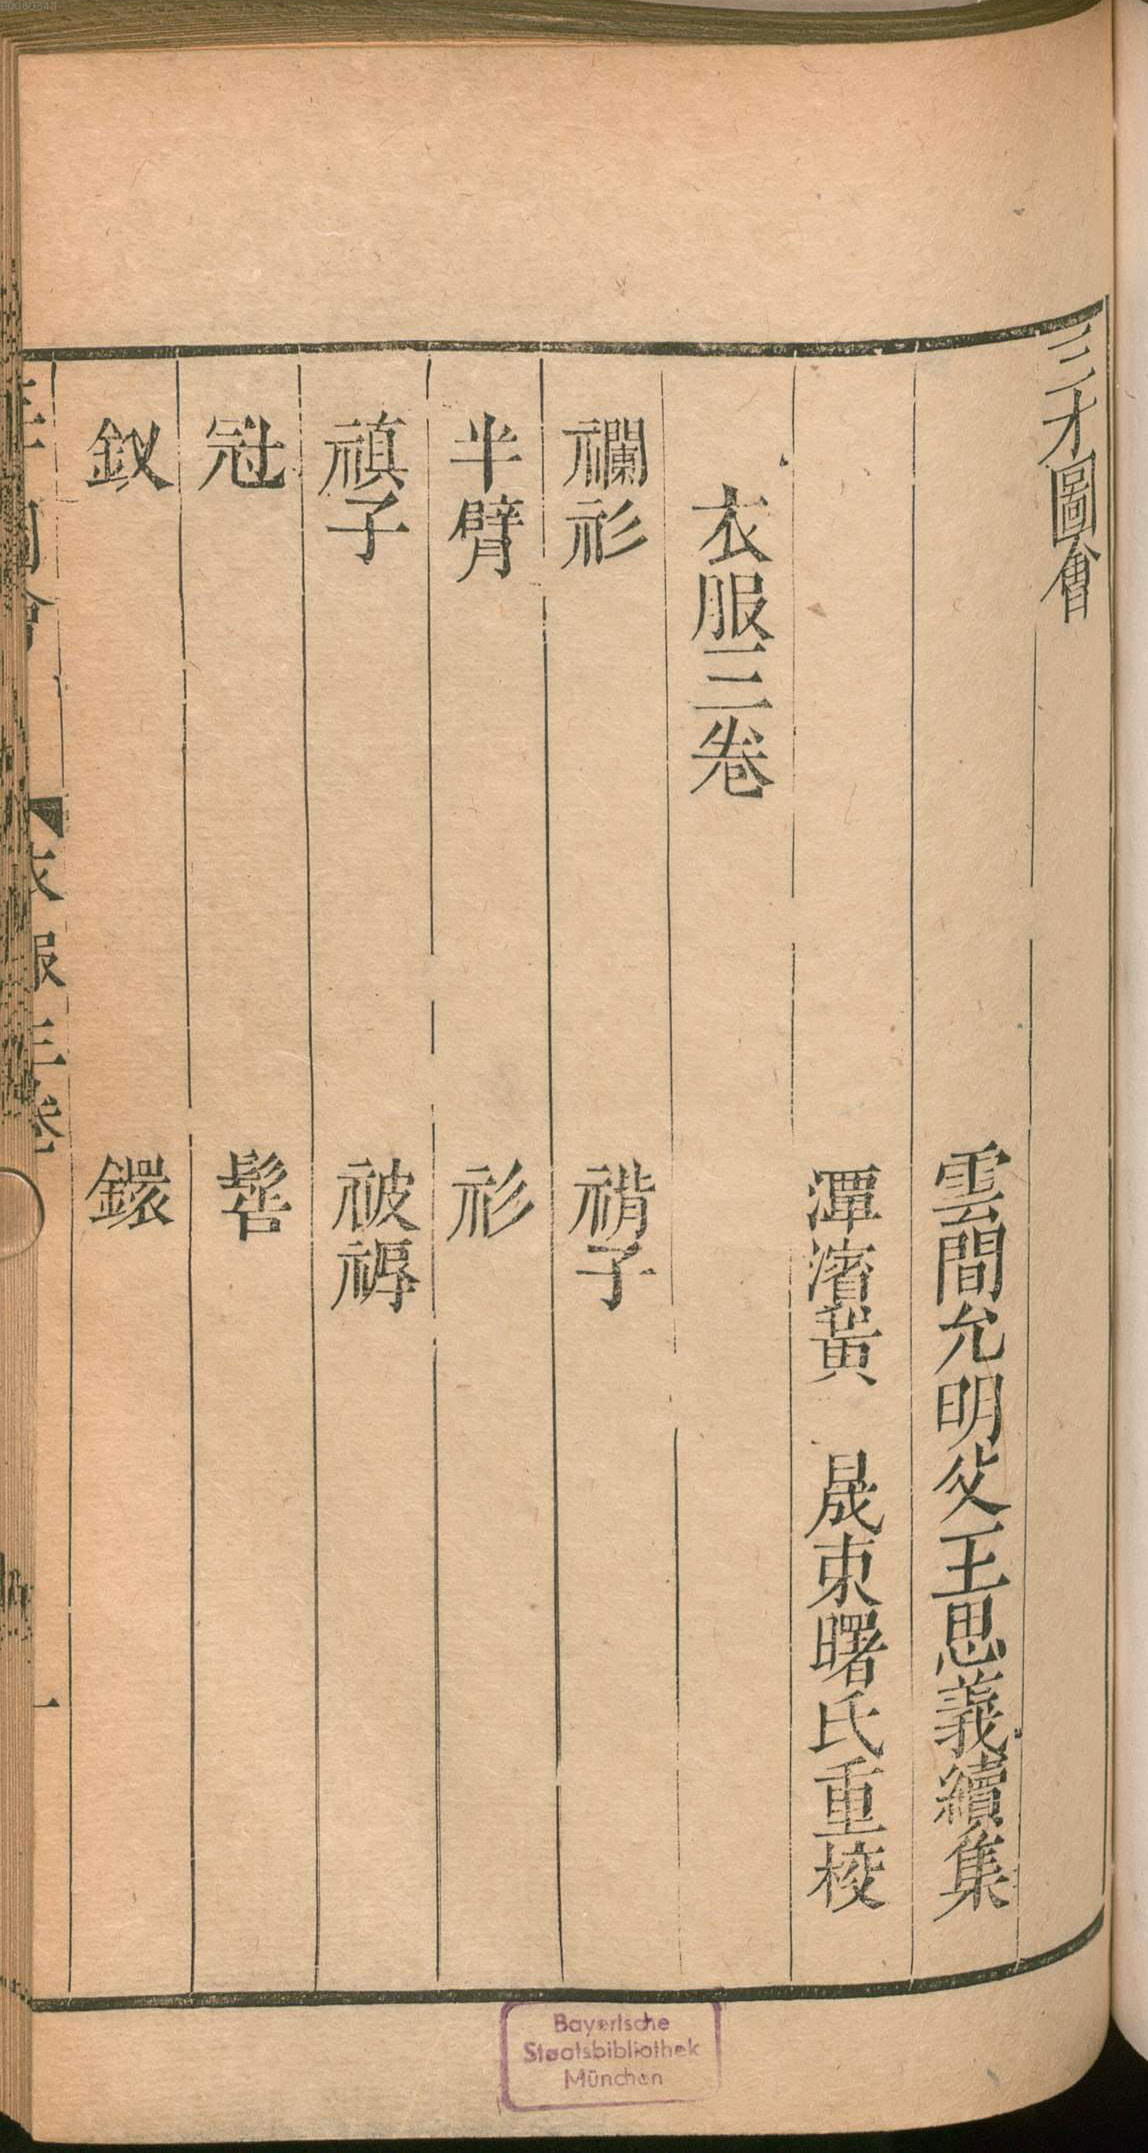 三才圖會
雲間允明父王思義續集
潭濱黃 晟東曙氏重校
衣服三卷
襴衫 褙子
半臂 衫
䙶子 被褥
冠 髻
釵 鐶
衣服三卷 一
Bayerische
Staatsbibliothek
München